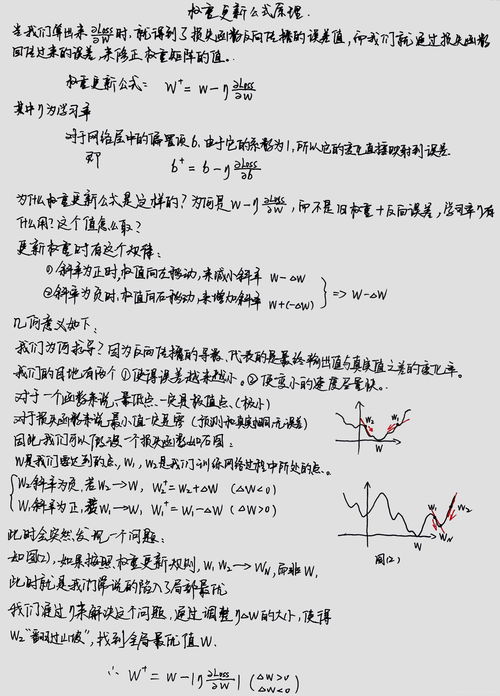 权重更新公式原理.
当我们算出来 ∂Loss/∂W 时,就得到了损失函数反向传播的误差值,而我们就通过损失函数
回传过来的误差,来修正权重矩阵的值.
权重更新公式: W⁺ = w - η ∂Loss/∂W
其中η为学习率
对于网络层中的偏置项b,由于它的系数为1,所以它的变化直接映射到误差.
即 b⁺ = b - η ∂Loss/∂b
为什么权重更新公式是这样的?为何是W - η ∂Loss/∂W,而不是旧权重+反向误差,学习率η有
什么用?这个值怎么取?
更新权重时有这个规律:
①斜率为正时,权值向左移动,来减小斜率 W - ΔW
②斜率为负时,权值向右移动,来增加斜率 W+(-ΔW)
=> W-ΔW
几何意义如下:
我们为何求导?因为反向传播的导数,代表的是最终输出值与真实值之差的变化率。
我们的目地有两个 ①使得误差越来越小。②使变小的速度尽量快。
对于一个函数来说,最低点一定是极值点、(极小)
对于损失函数来说,最小值一定是零 (预测和真实相同无误差)
因此,我们可以假设一个损失函数如右图:
W是我们要达到的点,W₁,W₂是我们训练网络过程中所处的点.
W₂斜率为负,若W₂→W, W₂⁺=W₂+ΔW (ΔW<0)
W₁斜率为正,若W₁→W, W₁⁺=W₁-ΔW (ΔW>0)
W₂ W₁
W
此时会突然发现一个问题:
如图(2),如果按照权重更新规则,W₁ W₂→W_N,而非W,
此时就是我们常说的陷入了局部最优
W₁ W₂
W W_N
图(2)
我们通过η来解决这个问题,通过调整ηΔW的大小,使得
W₂"翻过山坡",找到全局最优值W.
∴ W⁺ = W - |η ∂Loss/∂W| (ΔW>0
ΔW<0)